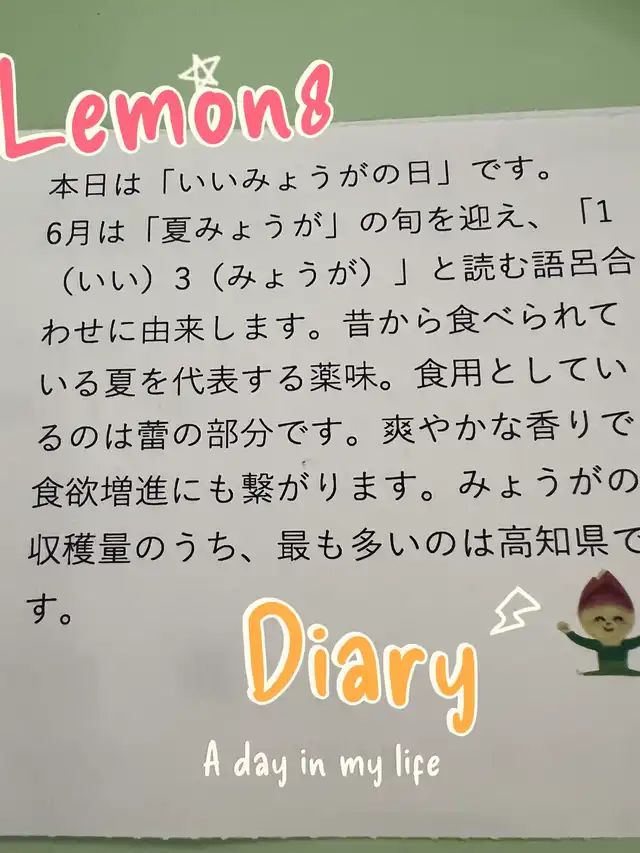 Lemon8
本日は「いいみょうがの日」です。
6月は「夏みょうが」の旬を迎え、「1
（いい）3（みょうが）」と読む語呂合
わせに由来します。昔から食べられて
いる夏を代表する薬味。食用としてい
るのは蕾の部分です。爽やかな香りで
食欲増進にも繋がります。みょうがの
収穫量のうち、最も多いのは高知県で
す。
Diary
A day in my life